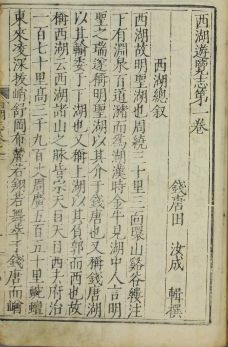 西湖遊覽志第一卷
錢唐田 汝成 輯撰
西湖總叙
西湖故明聖湖也周繞三十里三面環山谿谷縷注
下有淵泉百道瀦而爲湖漢時金牛見湖中人言明
聖之瑞遂稱明聖湖以其介于錢唐也又稱錢唐湖
以其輸委于下湖也又稱上湖以其負郭而西也故
稱西湖云西湖諸山之脉皆宗天目天目西去府治
一百七十里高三千九百丈周廣五百五十里蜿蟺
東來凌深拔峭舒岡布麓若翔若舞萃于錢唐而崷